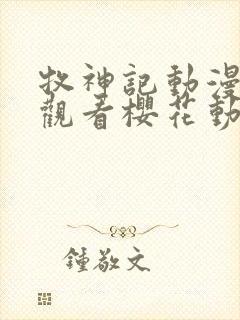 牧神記動漫
觀看櫻花動
鍾敬文